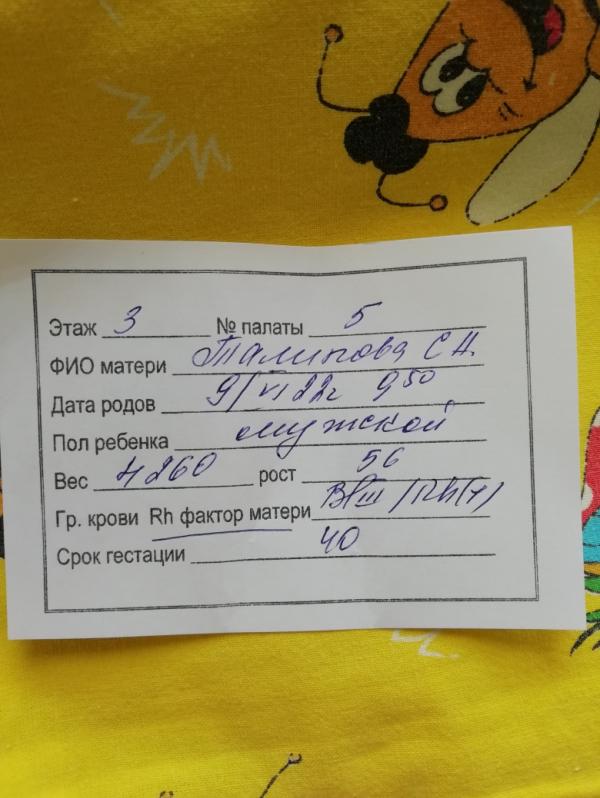 Этаж 3 № палаты 5
ФИО матери Талипова С.А.
Дата родов 9/VI 22г 9 50
Пол ребенка мужской
Вес 4260 рост 56
Гр. крови Rh фактор матери B/III /Rh(+)
Срок гестации 40